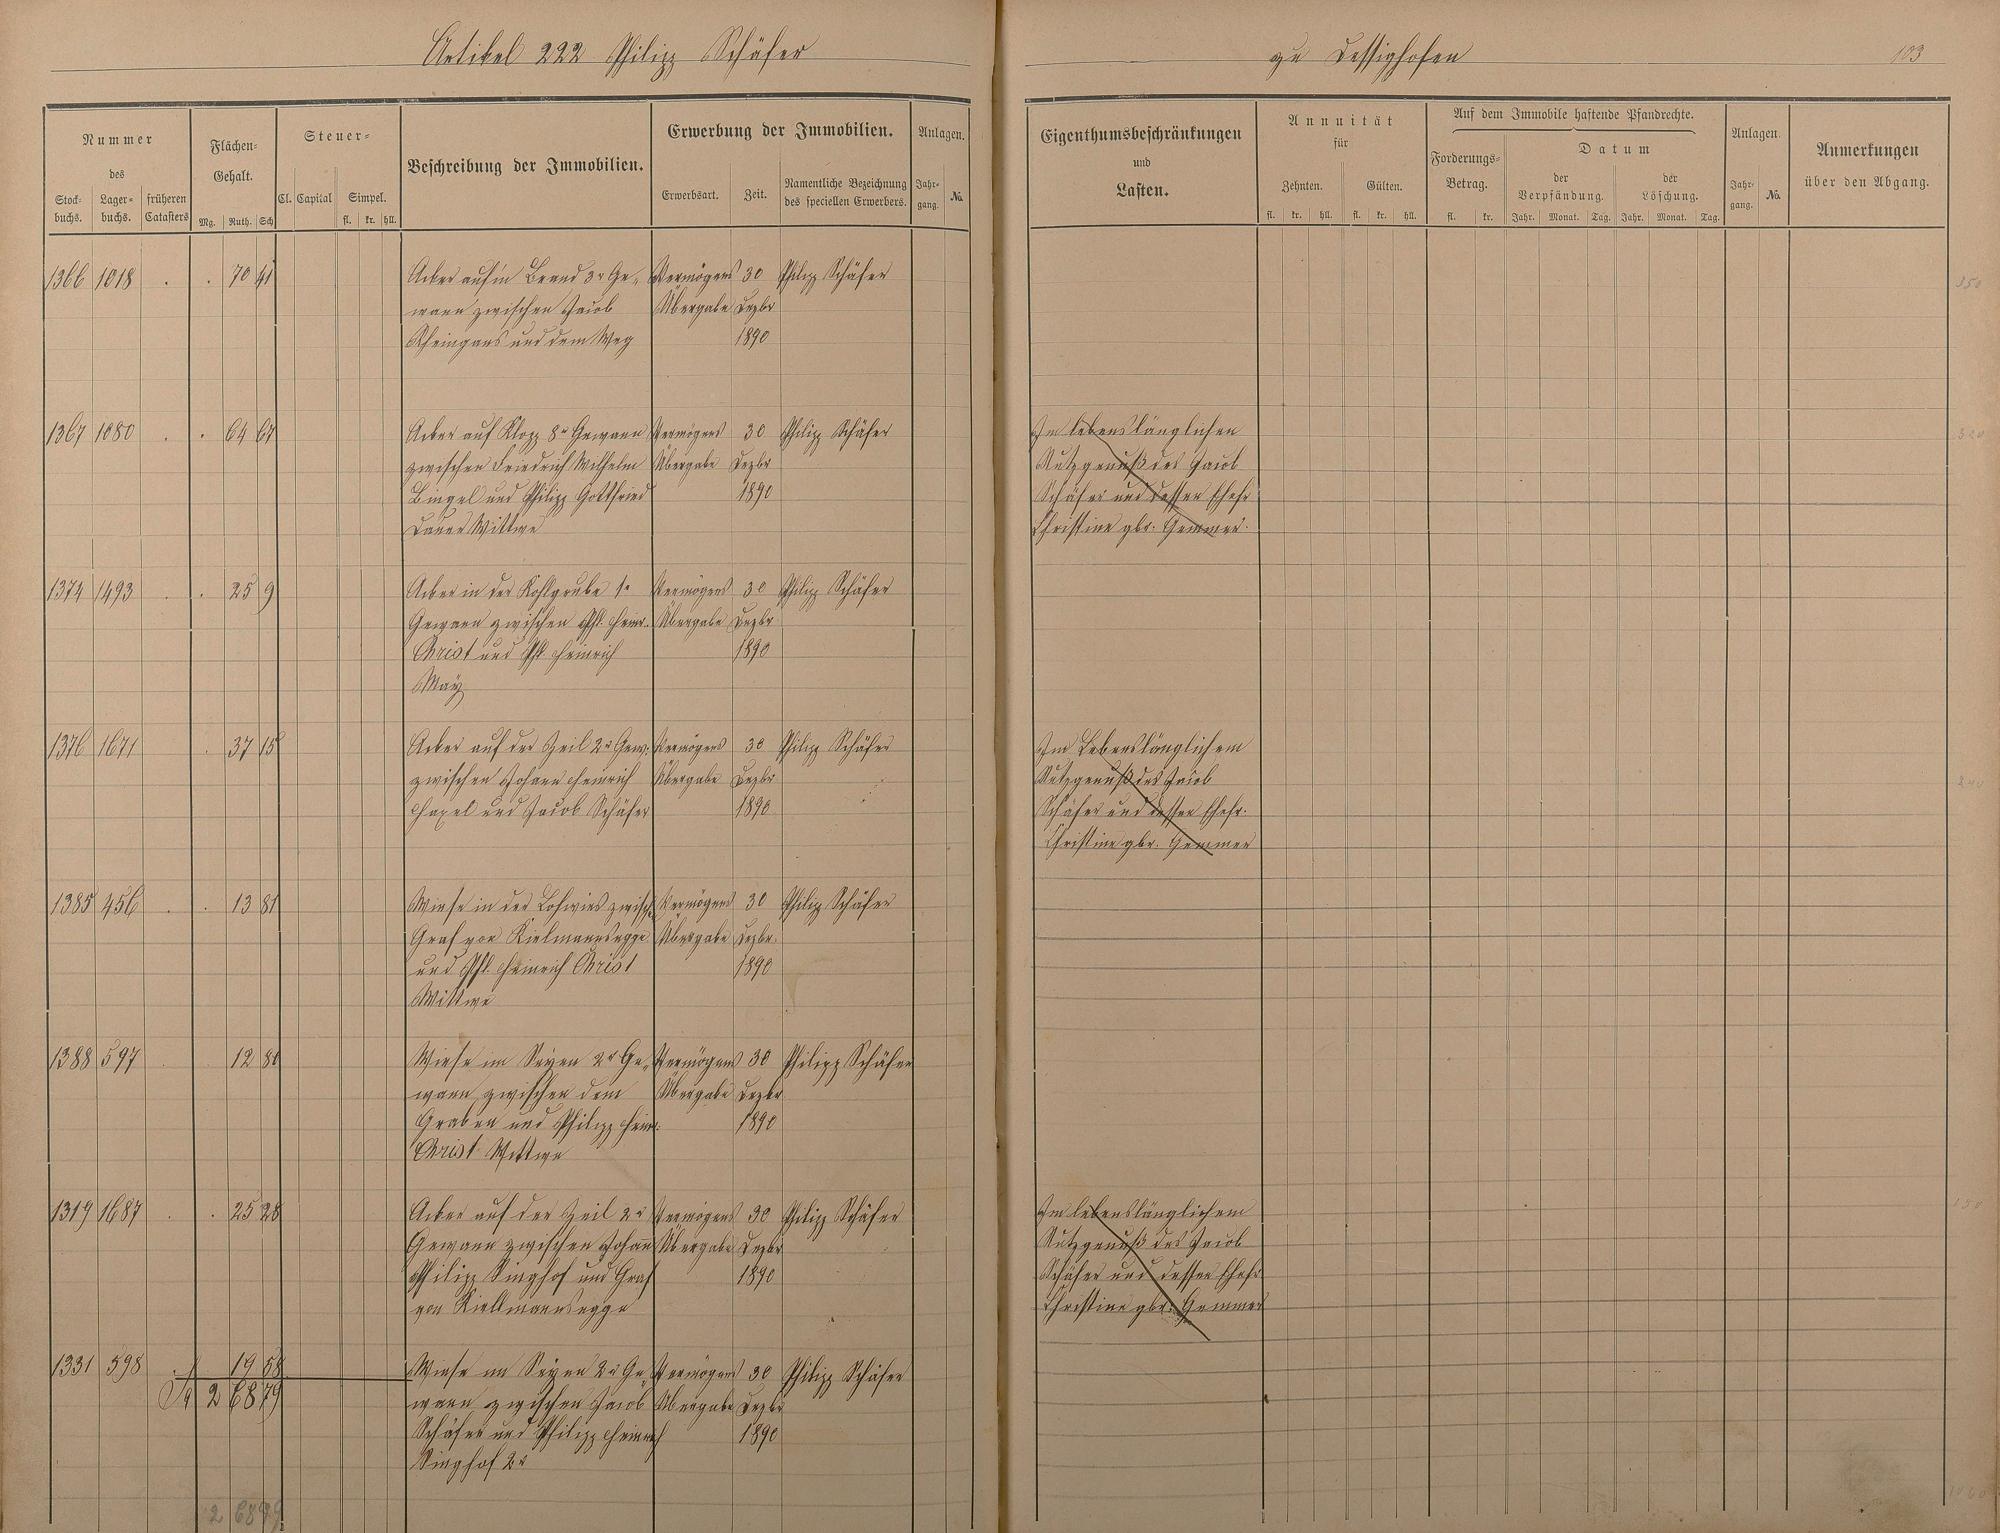 Artikel 222 Philipp Schäfer
zu Dessighofen
103
Nummer
des
Stock-
buchs.
Lager-
buchs.
früheren
Catasters
Flächen-
Gehalt.
Mg. Ruth. Sch
Steuer-
Cl. Capital Simpel.
fl. kr. hll.
Beschreibung der Immobilien.
Erwerbung der Immobilien.
Erwerbsart. Zeit.
Namentliche Bezeichnung
des speciellen Erwerbers.
Anlagen.
Jahr-
gang.
No.
Eigenthumsbeschränkungen
und
Lasten.
Annuität
für
Zehnten. Gülten.
fl. kr. hll. fl. kr. hll.
Auf dem Immobile haftende Pfandrechte.
Forderungs-
Betrag.
fl. kr.
Datum
der
Verpfändung.
Jahr. Monat. Tag.
der
Löschung.
Jahr. Monat. Tag.
Anlagen.
Jahr-
gang.
No.
Anmerkungen
über den Abgang.
1366 1018 . . 70 41 Acker auf'm Brand 3r Ge- Vermögens 30 Philipp Schäfer
wann zwischen Jacob Übergabe Dezbr
Rheingans und dem Weg 1890
1367 1080 . . 64 67 Acker auf Klopp 8r Gewann Vermögens 30 Philipp Schäfer Im lebenslänglichen
zwischen Friedrich Wilhelm Übergabe Dezbr Nutzgenuß des Jacob
Bingel und Philipp Gottfried 1890 Schäfer und dessen Ehefr
Dauer Wittwe Christine gbr. Gemmer.
1374 1493 . . 25 9 Acker in der Kohlgrube 1r Vermögens 30 Philipp Schäfer
Gewann zwischen Phl. Heinr. Übergabe Dezbr
Christ und Phl Heinrich 1890
May
1376 1671 . 37 15 Acker auf der Zeil 2r Gew: Vermögens 30 Philipp Schäfer Im Lebenslänglichem
zwischen Johann Heinrich Übergabe Dezbr Nutzgenuß des Jacob
Haxel und Jacob Schäfer 1890 Schäfer und dessen Ehefr.
Christine gbr. Gemmer
1385 456 . . 13 81 Wiese in der Lohwies zwisch. Vermögens 30 Philipp Schäfer
Graf von Kielmannsegge Übergabe Dezbr.
und Phl. Heinrich Christ 1890
Wittwe
1388 597 . . 12 80 Wiese im Seyen 2r Ge- Vermögens 30 Philipp Schäfer
wann zwischen dem Übergabe Dezbr
Graben und Philipp Heinr: 1890
Christ Wittwe
1319 1687 . . 25 28 Acker auf der Zeil 2r Vermögens 30 Philipp Schäfer Im lebenslänglichem
Gewann zwischen Johann Übergabe Dezbr Nutzgenuß des Jacob
Philipp Singhof und Graf 1890 Schäfer und dessen Ehefr
von Kiellmannsegge Christine gbr. Gemmer
1331 598 19 58 Wiese im Seyen 2r Ge- Vermögens 30 Philipp Schäfer
2 68 79 wann zwischen Jacob Übergabe Dezbr
Schäfer und Philipp Heinrich 1890
Singhof 2r
2 68 79